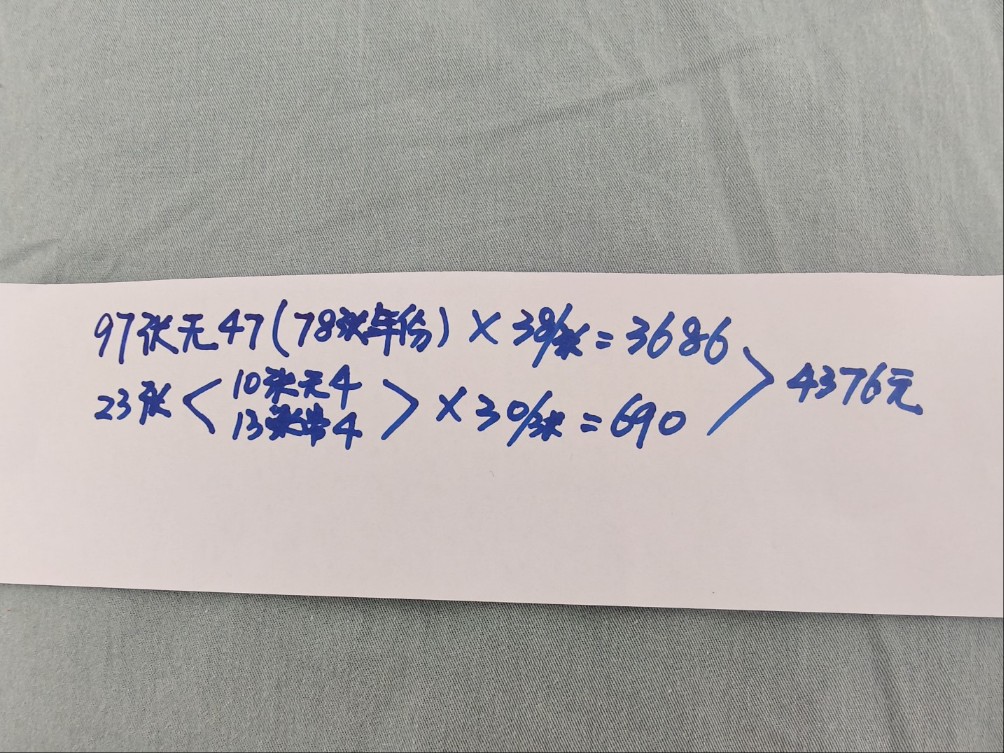 97张无47(78张年份)×38/张=3686
23张<10张无4
13张带4>×30/张=690
>4376元